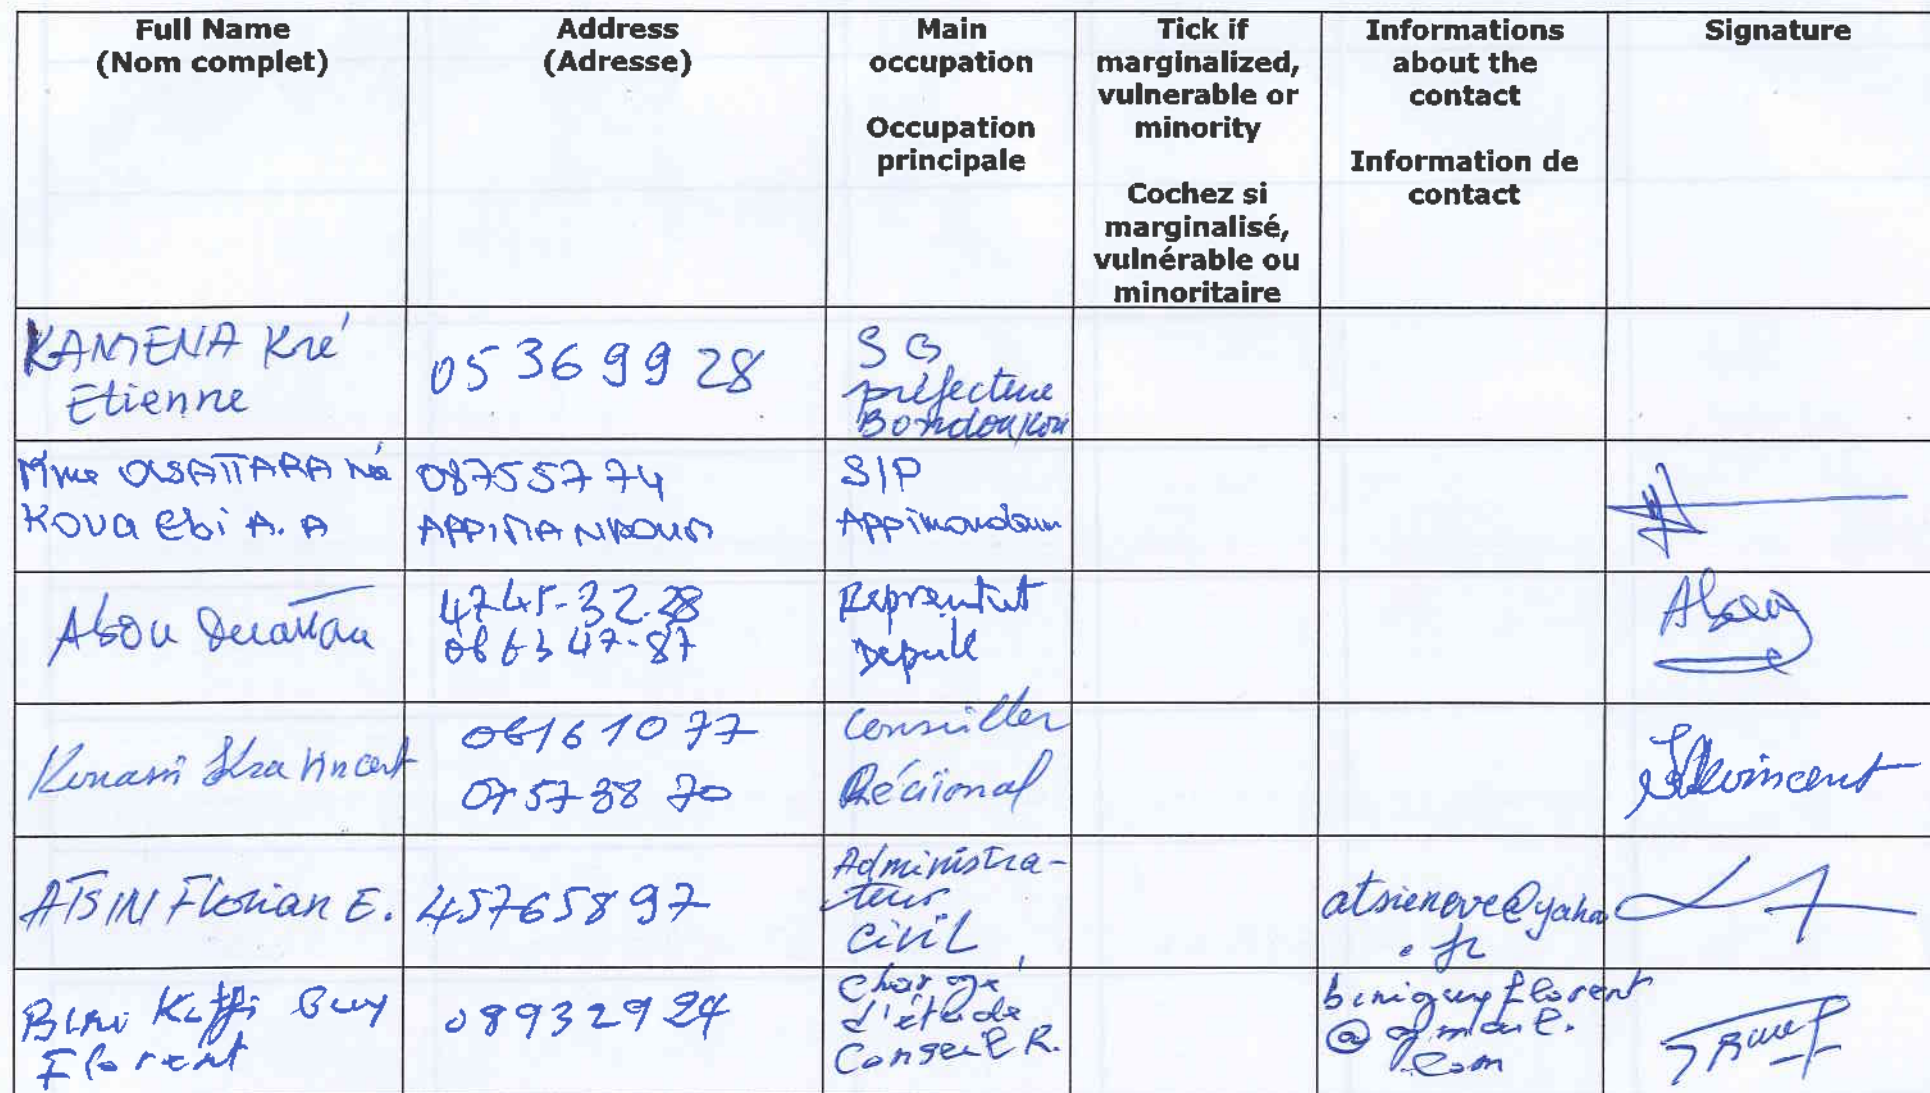 Full Name
(Nom complet)
Address
(Adresse)
Main
occupation
Occupation
principale
Tick if
marginalized,
vulnerable or
minority
Cochez si
marginalisé,
vulnérable ou
minoritaire
Informations
about the
contact
Information de
contact
Signature
KAMENA Kré
Etienne
05 36 99 28
SG
préfecture
Bondoukou
Mme OUATTARA Née
A. A
08755774
S/P
Abou Ouattara
4745-32.28
Député
Vincent
06161077
Conseiller
Régional
ATSIN Florian E.
45765897
Administra-
teur
civil
@yahoo
.fr
Bini Koffi Guy
Florent
08932924
Chargé
d'étude
Conseil R.
biniguyflorent
@gmail.
com